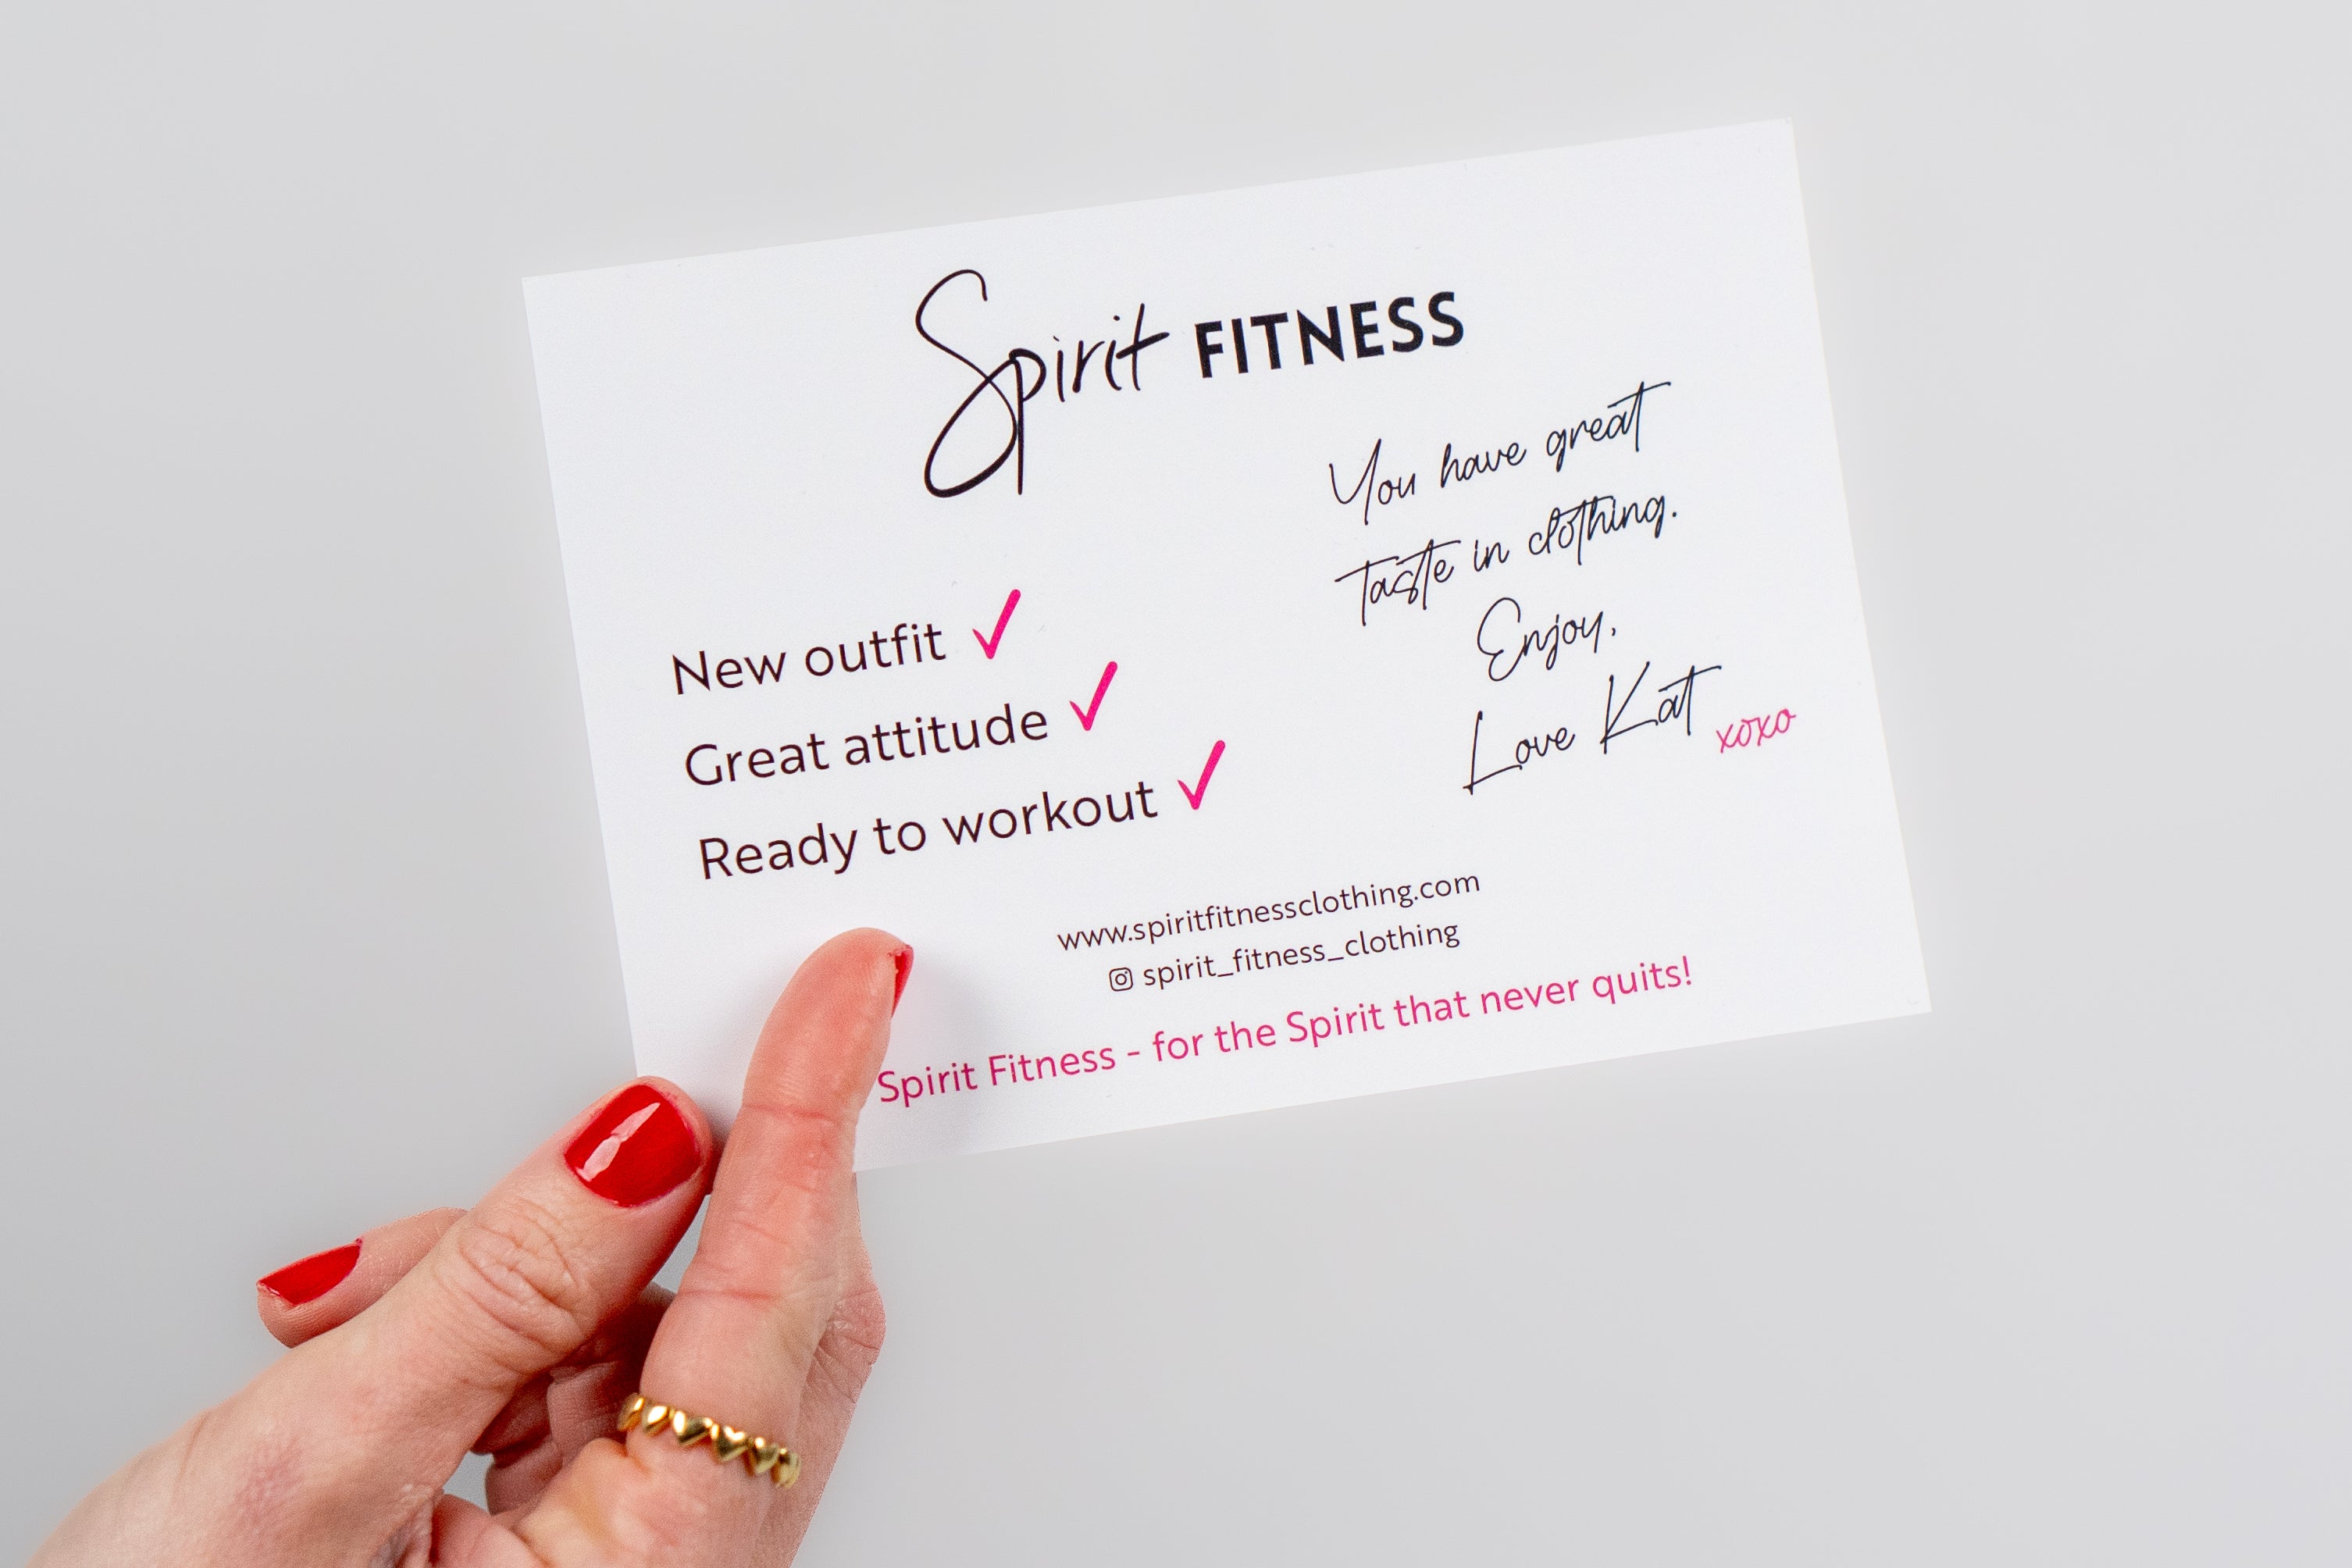 Spirit FITNESS
New outfit ✓
Great attitude ✓
Ready to workout ✓
You have great
taste in clothing.
Enjoy,
Love Kat xoxo
www.spiritfitnessclothing.com
spirit_fitness_clothing
Spirit Fitness - for the Spirit that never quits!